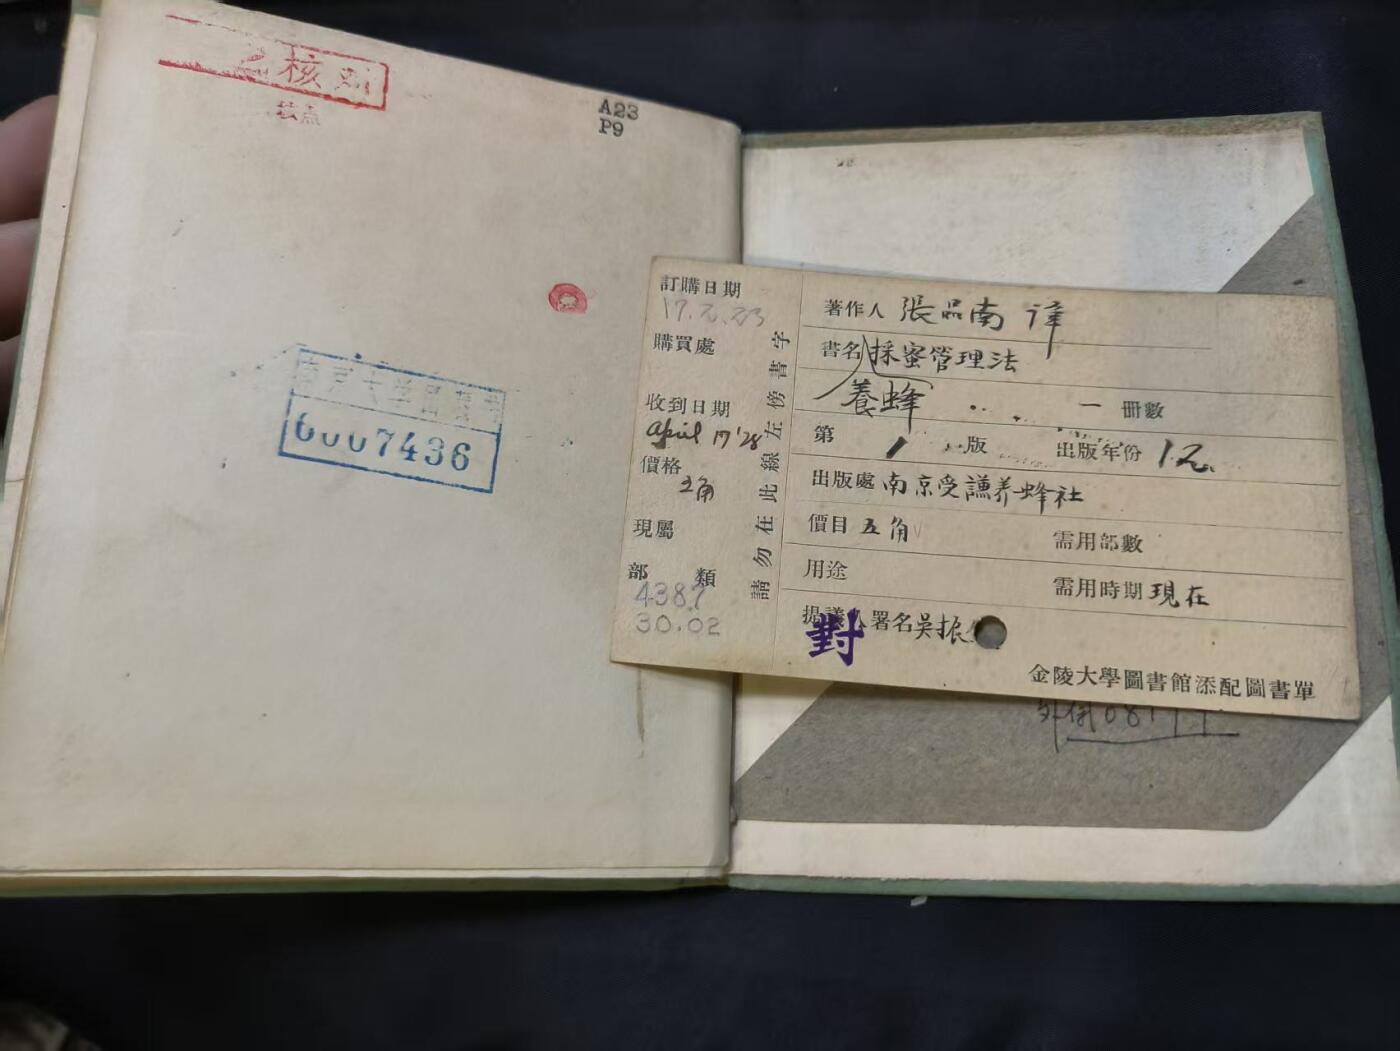 核
核点
A23
P9
6007436
訂購日期
17.2.23
購買處
收到日期
April 17 '28
價格
五角
現屬
部類
4387
30.02
請勿在此線左傍書字
著作人 張品南 譯
書名 採蜜管理法
養蜂
一 冊數
第 1 版 出版年份
出版處 南京受謙养蜂社
價目 五角 需用部數
用途 需用時期 現在
提議人署名 吴振
對
金陵大學圖書館添配圖書單